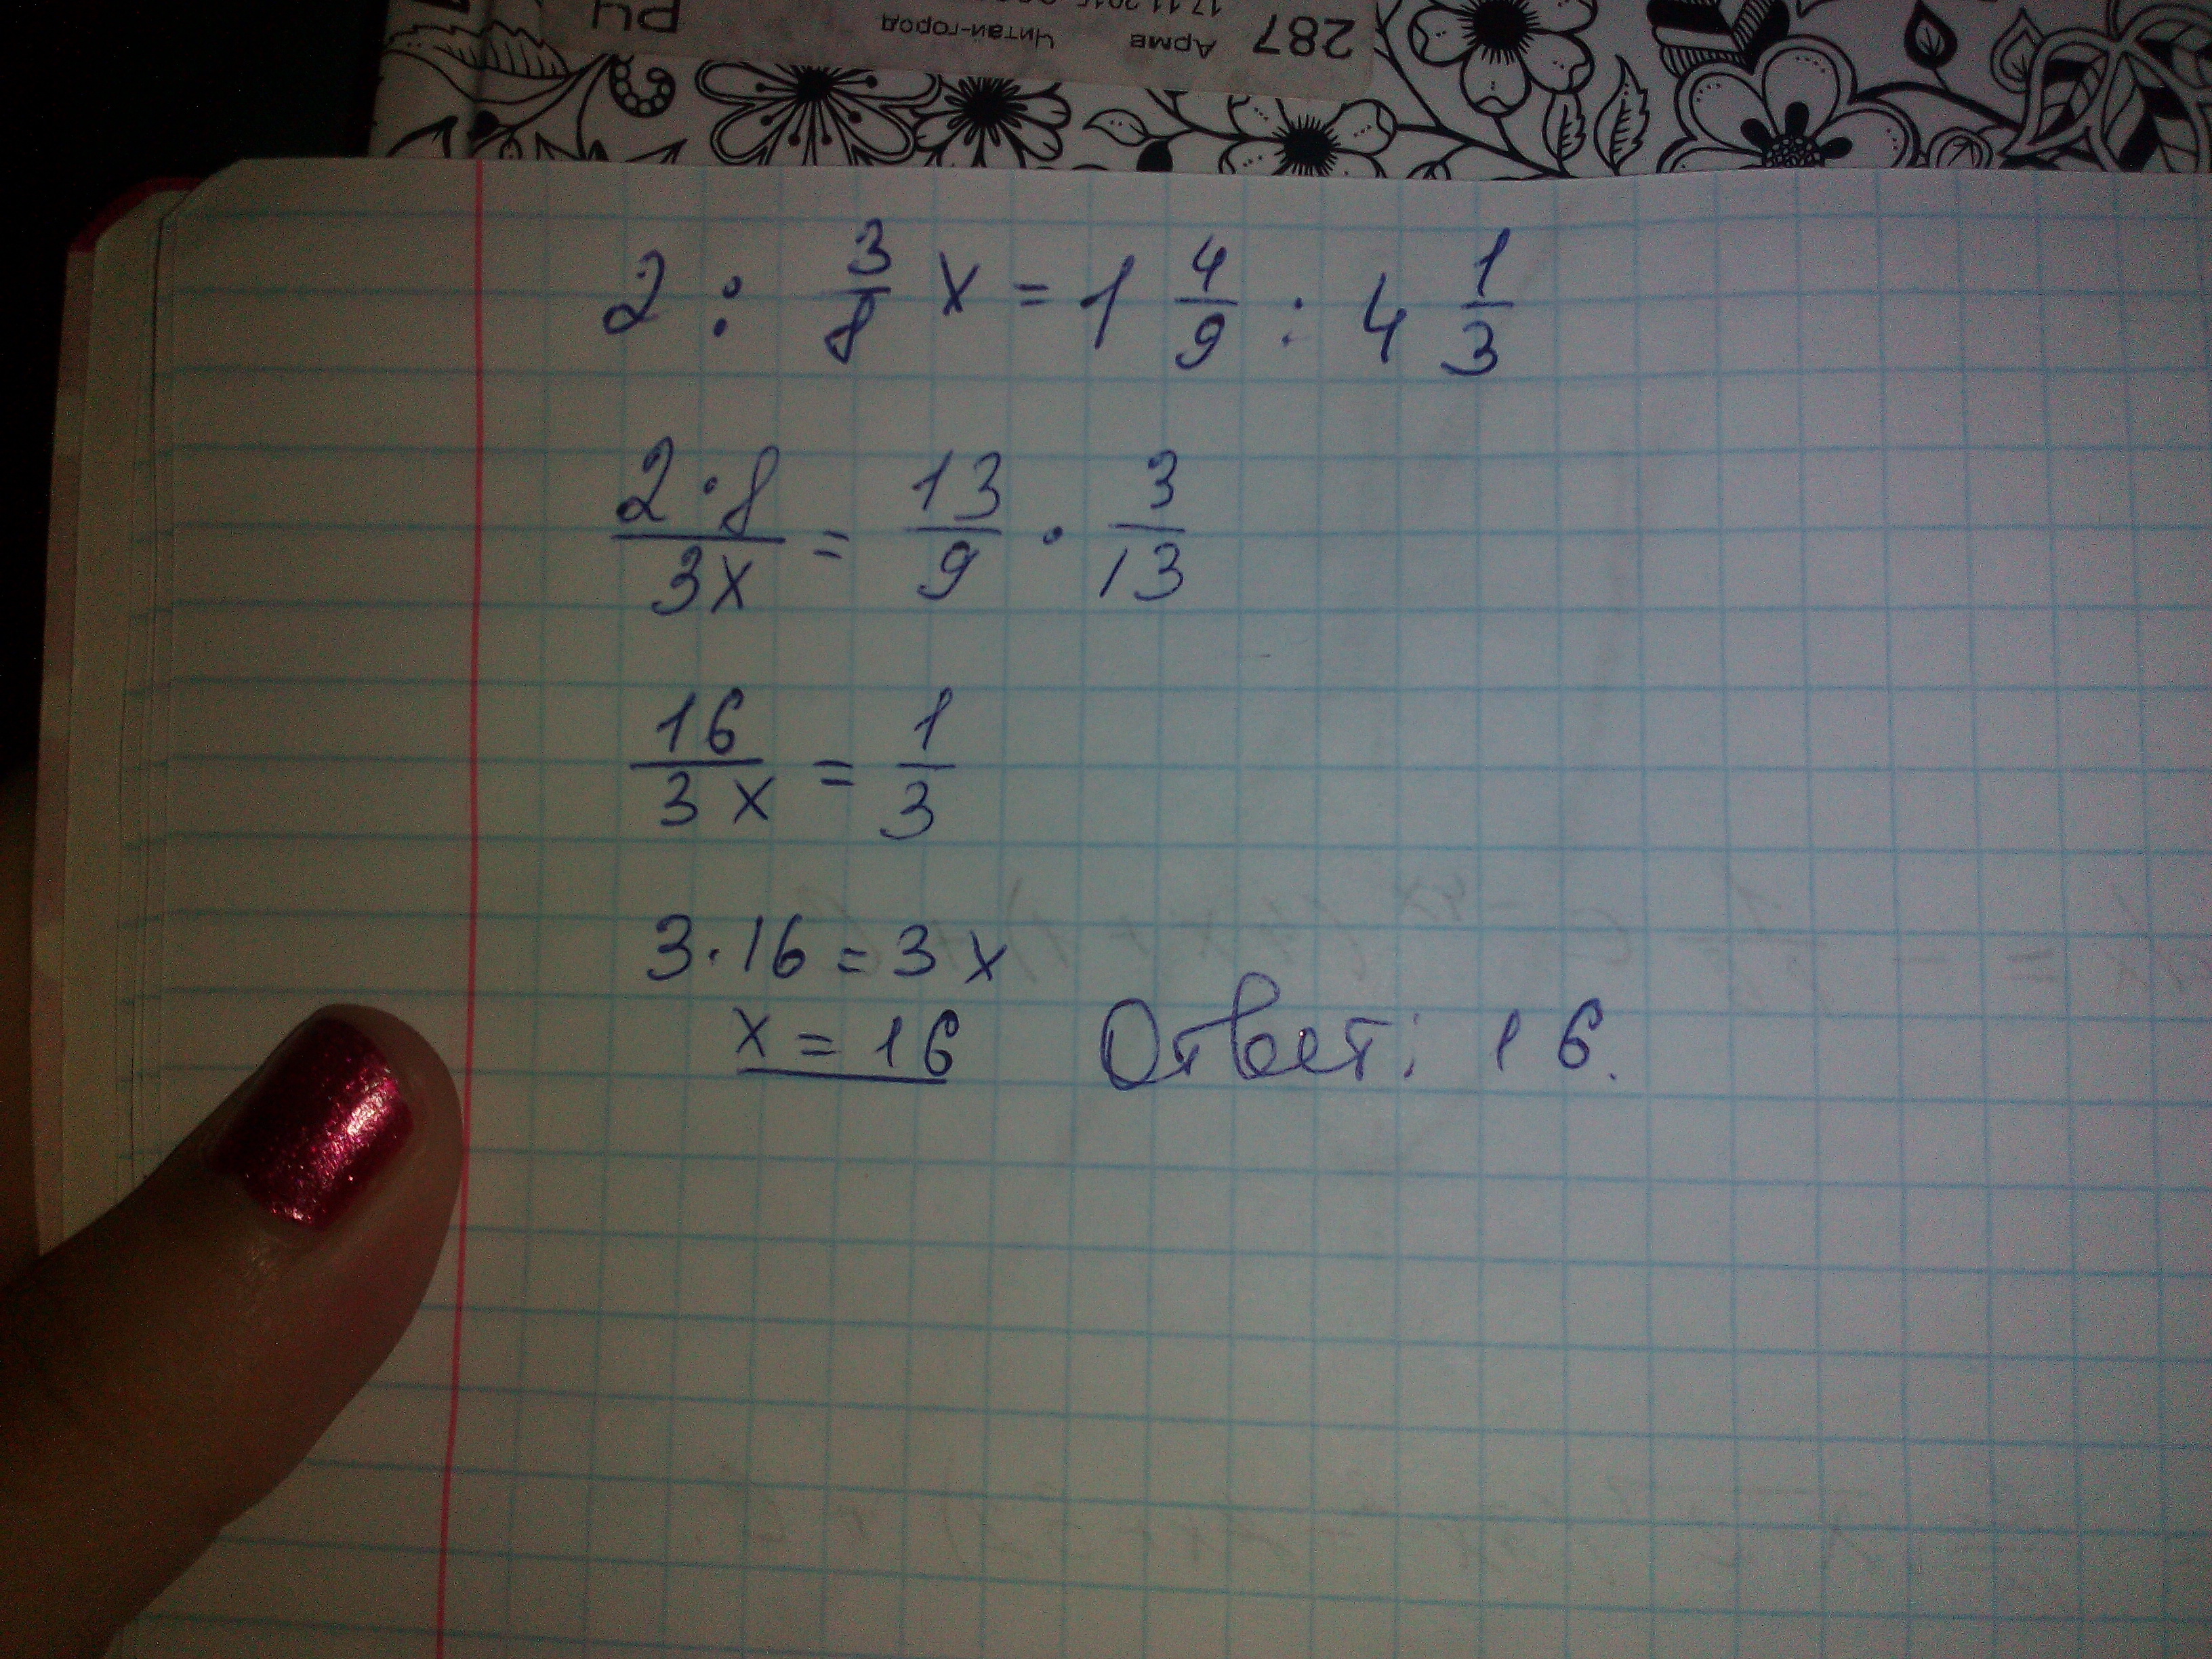 287 Арма Читай-город РЦ
2 : 3/8 x = 1 4/9 : 4 1/3
2·8/3x = 13/9 · 3/13
16/3x = 1/3
3·16=3x
x = 16 Ответ: 16.